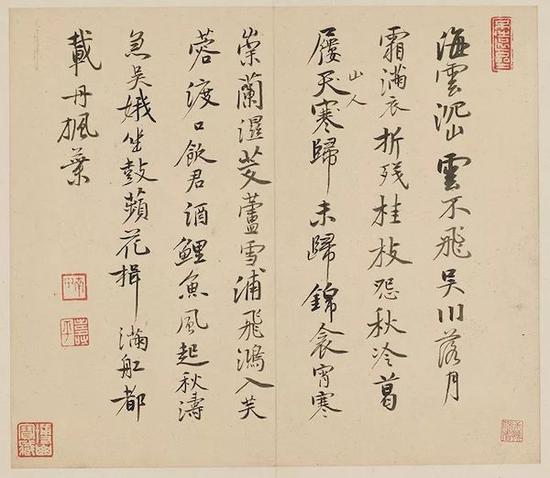 海雲沉沉雲不飛吳川落月
霜滿衣折残桂枝怨秋冷葛
屨天寒歸未歸錦衾宵寒
山人
崇蘭濕芰蘆雪浦飛鴻入芙
蓉渡口飲君酒鯉魚風起秋濤
急吳娥坐鼓蘋花楫滿舡都
載丹楓葉